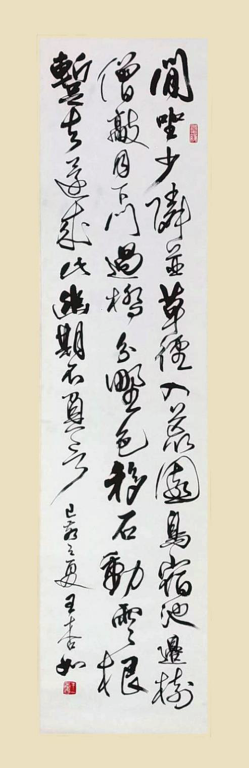 閒坐少隣並草徑入荒園鳥宿池邊樹
僧敲月下門過橋分野色移石動雲根
暫去還來此幽期不負言
之夏王如